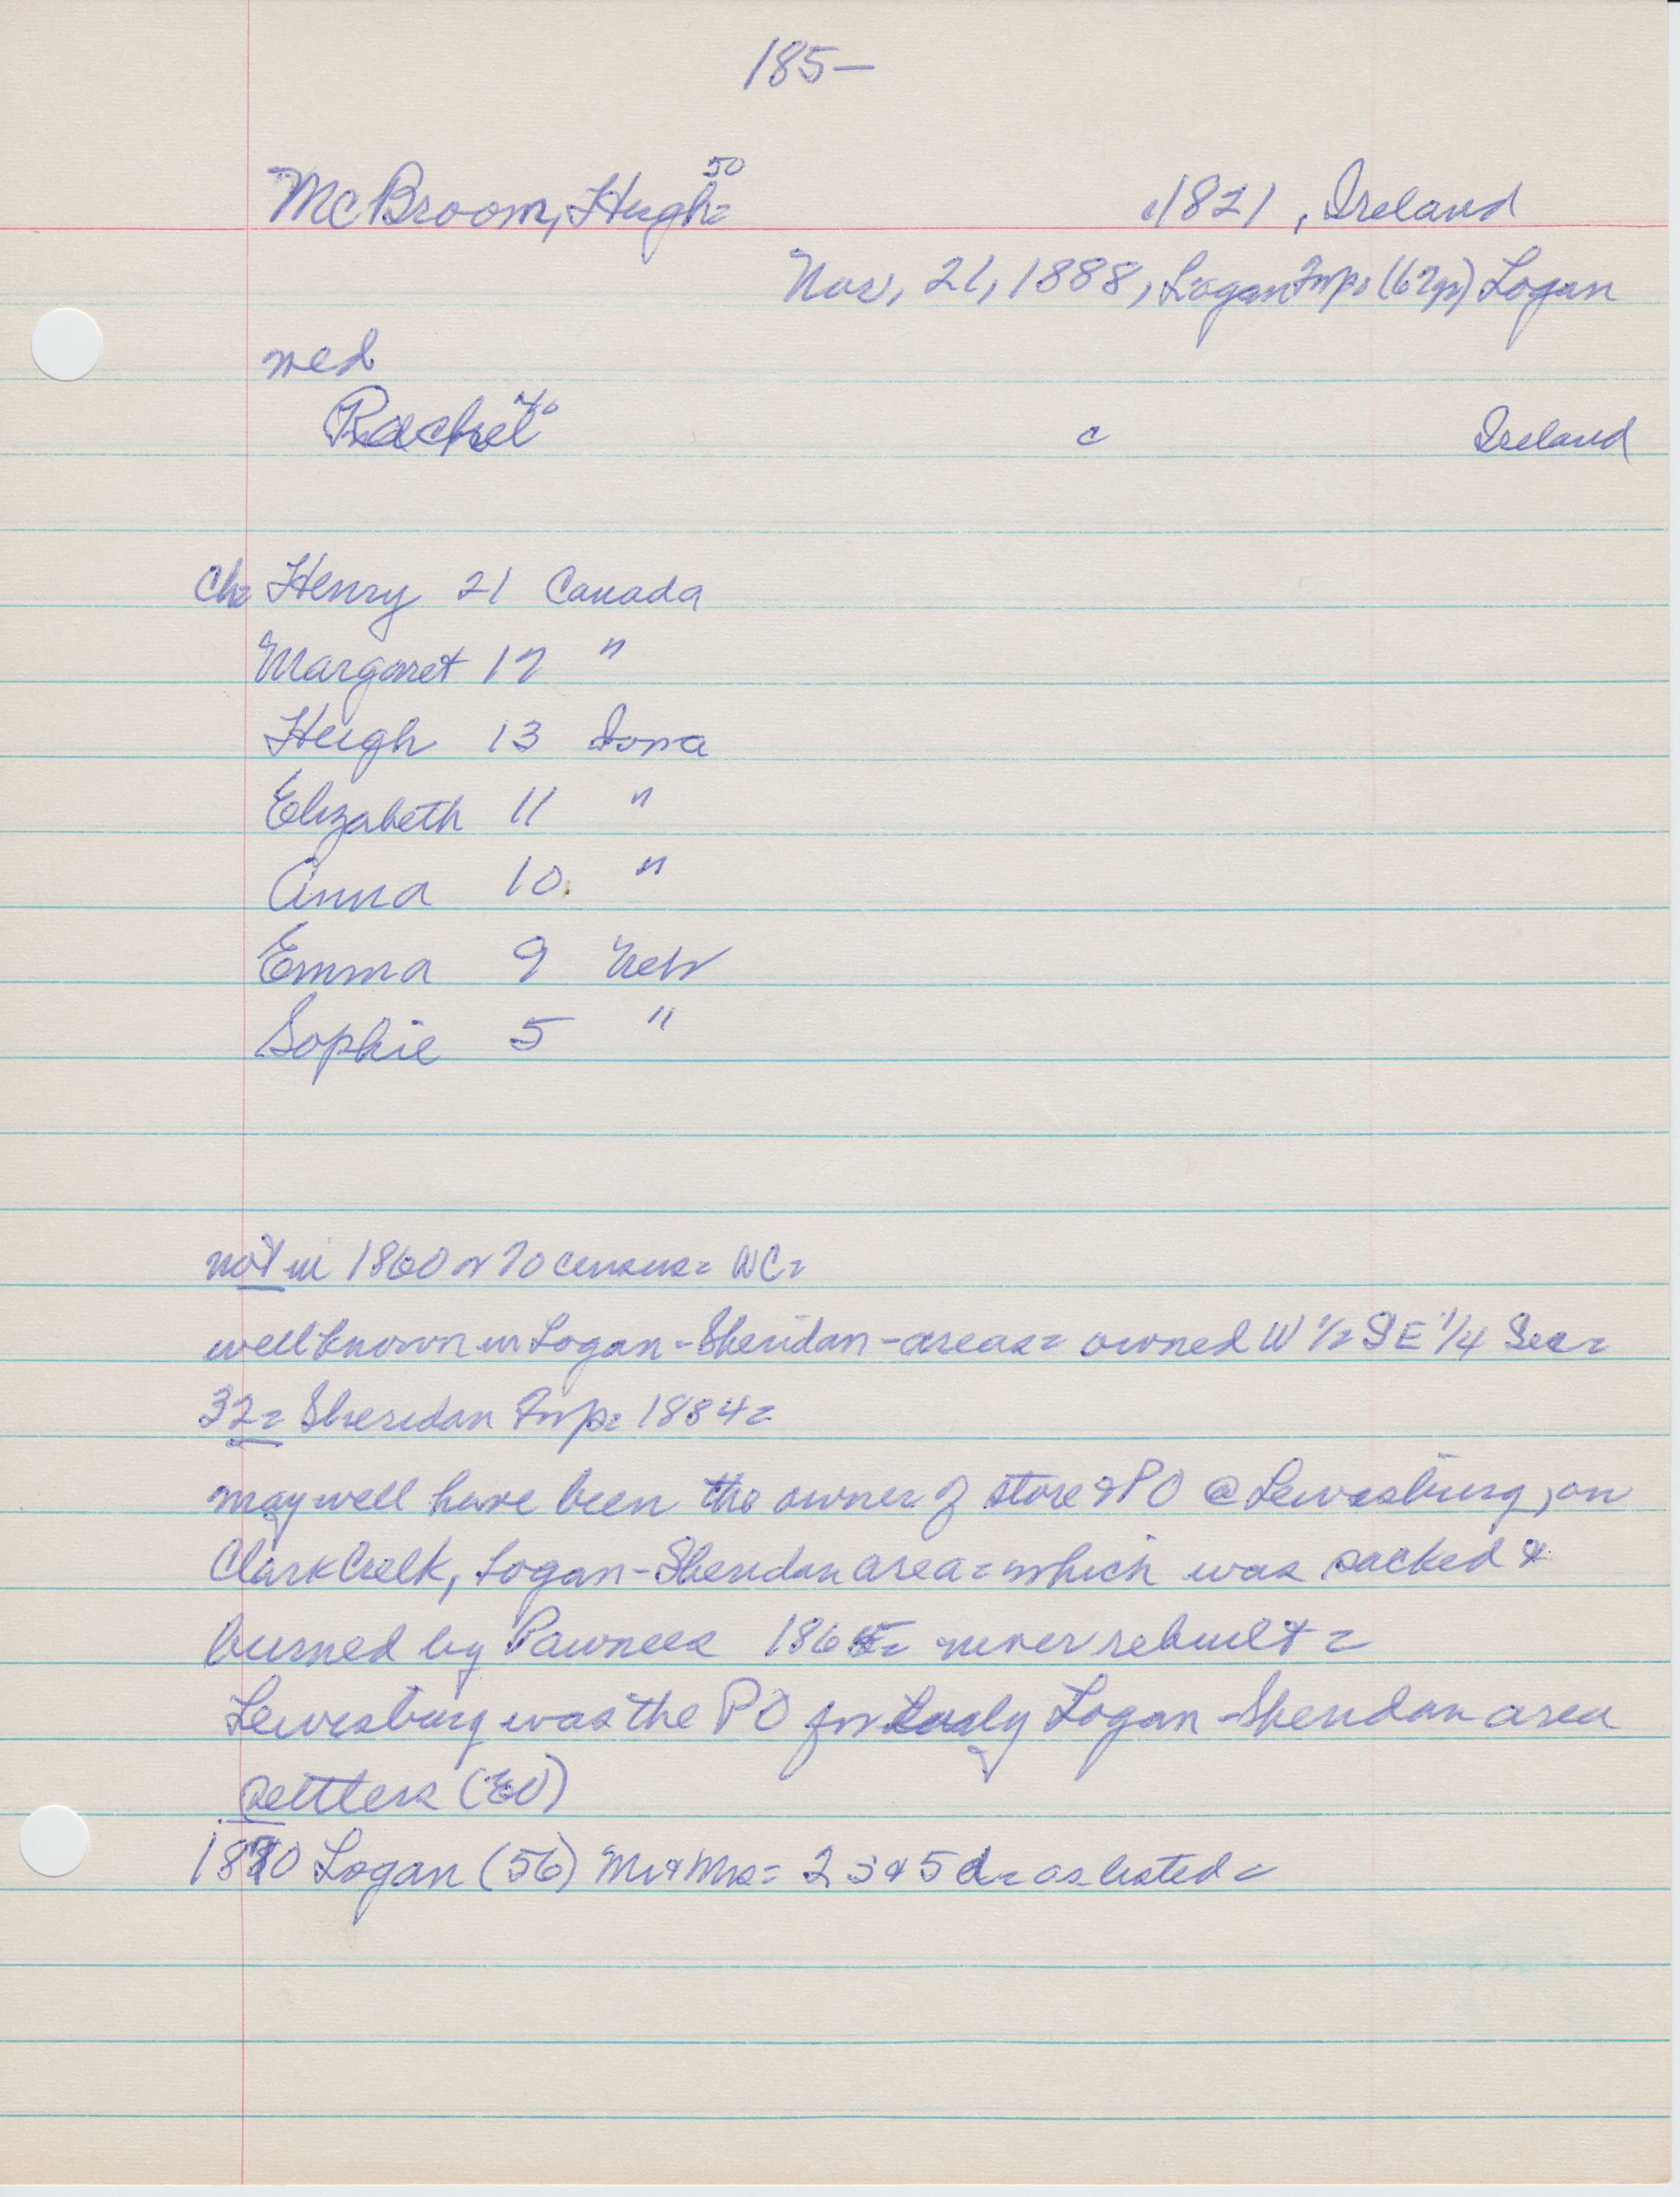 185—
McBroom, Hugh= 50
c1821, Ireland
Nov, 21, 1888, Logan Twp. (67yr) Logan
med
Rachel 40 c Ireland
Ch= Henry 21 Canada
Margaret 17 "
Hugh 13 Iowa
Elizabeth 11 "
Anna 10. "
Emma 9 Neb
Sophie 5 "
not in 1860 or 70 census= WC=
well known in Logan-Sheridan-areas= owned W 1/2 SE 1/4 Sec=
32= Sheridan Twp= 1884=
may well have been the owner of store & PO @ Lewisburg, on
Clark Creek, Logan-Sheridan area= which was sacked &
burned by Pawnees 1865= never rebuilt=
Lewisburg was the PO for Early Logan-Sheridan area
settlers (EU)
1870 Logan (56) Mr & Mrs= 2 S & 5 d= as listed=